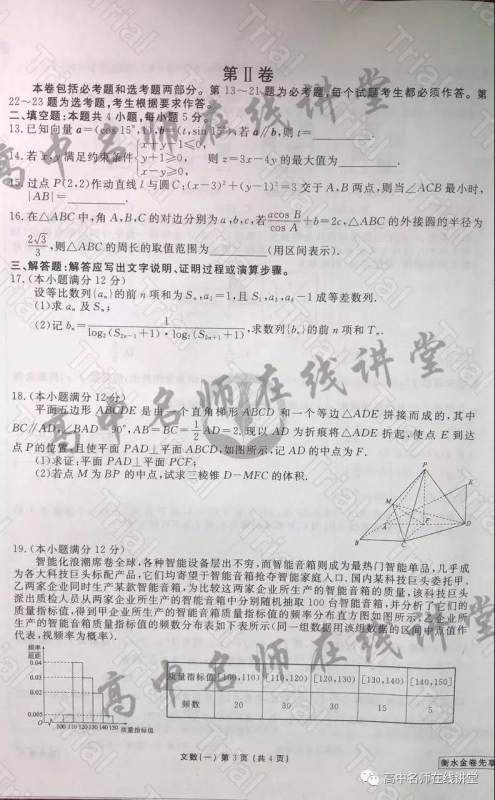 第Ⅱ卷
本卷包括必考题和选考题两部分。第13～21题为必考题,每个试题考生都必须作答。第
22～23题为选考题,考生根据要求作答。
二、填空题:本题共4小题,每小题5分。
13.已知向量a=(cos 15°,1),b=(t,sin 15°),若a∥b,则t=
x+y+1≥0,
14.若x,y满足约束条件 y+1≥0, 则z=3x-4y的最大值为
15.过点P(2,2)作动直线l与圆C:(x-3)²+(y-1)²=3交于A,B两点,则当∠ACB最小时,
|AB|=
16.在△ABC中,角A,B,C的对边分别为a,b,c,若acos B/cos A+b=2c,△ABC的外接圆的半径为
2√3/3,则△ABC的周长的取值范围为 (用区间表示).
三、解答题:解答应写出文字说明、证明过程或演算步骤。
17.(本小题满分12分)
设等比数列{aₙ}的前n项和为Sₙ,a₁=1,且S₁,a₃,a₄-1成等差数列.
(1)求aₙ及Sₙ;
(2)记bₙ=1/log₂(S₂ₙ₋₁+1)·log₂(S₂ₙ₊₁+1),求数列{bₙ}的前n项和Tₙ.
18.(本小题满分12分)
平面五边形ABCDE是由一个直角梯形ABCD和一个等边△ADE拼接而成的,其中
BC∥AD,∠BAD=90°,AB=BC=1/2AD=2.现以AD为折痕将△ADE折起,使点E到达
点P的位置,且使平面PAD⊥平面ABCD,如图所示,记AD的中点为F.
(1)求证:平面PAD⊥平面PCF;
(2)若点M为BP的中点,试求三棱锥D-MFC的体积.
P
E
M
A
F
D
B
C
19.(本小题满分12分)
智能化浪潮席卷全球,各种智能设备层出不穷,而智能音箱则成为最热门智能单品,几乎成
为各大科技巨头标配产品,它们均寄望于智能音箱抢夺智能家庭入口.国内某科技巨头委托甲、
乙两家企业同时生产某款智能音箱,为比较这两家企业所生产的智能音箱的质量,该科技巨头
派出质检人员从两家企业所生产的智能音箱中分别随机抽取100台智能音箱,并分析了它们的
质量指标值,得到甲企业所生产的智能音箱质量指标值的频率分布直方图如图所示,乙企业所
生产的智能音箱质量指标值的频数分布表如下表所示(同一组数据用该组数据的区间中点值作
代表,视频率为概率).
频率
组距
0.04
0.03
0.02
0.005
O 100 110 120 130 140 150 质量指标值
质量指标值 [100,110) [110,120) [120,130) [130,140) [140,150]
频数 20 30 15 5
文数(一) 第3页 (共4页)
衡水金卷先享
高中名师在线讲堂
高中名师在线讲堂
高中名师在线讲堂
高中名师在线讲堂
Trial